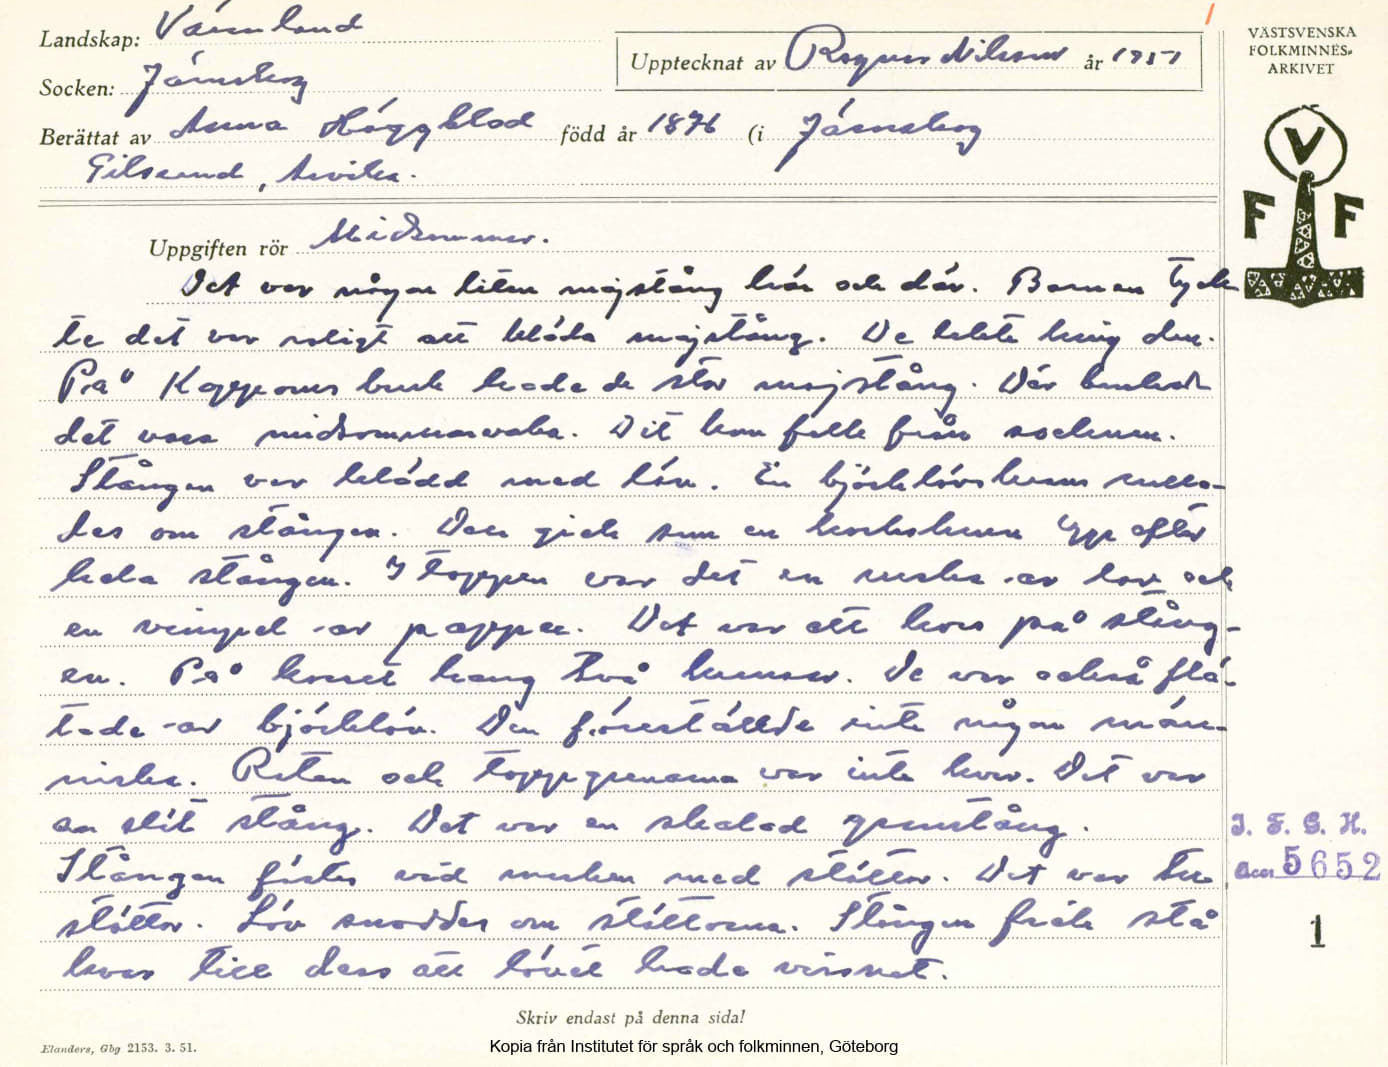 Landskap: Värmland
Socken: Järnskog
Upptecknat av Ragnar Nilsson år 1951
Berättat av Anna Häggblad född år 1876 (i Järnskog
Gilserud, Arvika.
VÄSTSVENSKA
FOLKMINNES-
ARKIVET
V
F F
Uppgiften rör Midsommar.
Det var någon liten majstång här och där. Barnen tyck
te det var roligt att kläda majstång. De lekte kring den.
På Koppoms bruk hade de stor majstång. Där brukade
det vara midsommarvaka. Dit kom folk från socknen.
Stången var klädd med löv. En björklövskrans rulla-
des om stången. Den gick som en korkskruv upp efter
hela stången. I toppen var det en ruska av löv och
en vimpel av papper. Det var ett kors på stång-
en. På korset hang två kransar. De var också flä-
tade av björklöv. Den föreställde inte någon män-
niska. Roten och toppgrenarna var inte kvar. Det var
en slät stång. Det var en skalad granstång.
Stången fästes vid marken med stöttor. Det var tre
stöttor. Löv snoddes om stöttorna. Stången fick stå
kvar till dess att lövet hade vissnat.
I. F. G. H.
Acc. 5652
1
Skriv endast på denna sida!
Elanders, Gbg 2153. 3. 51.
Kopia från Institutet för språk och folkminnen, Göteborg